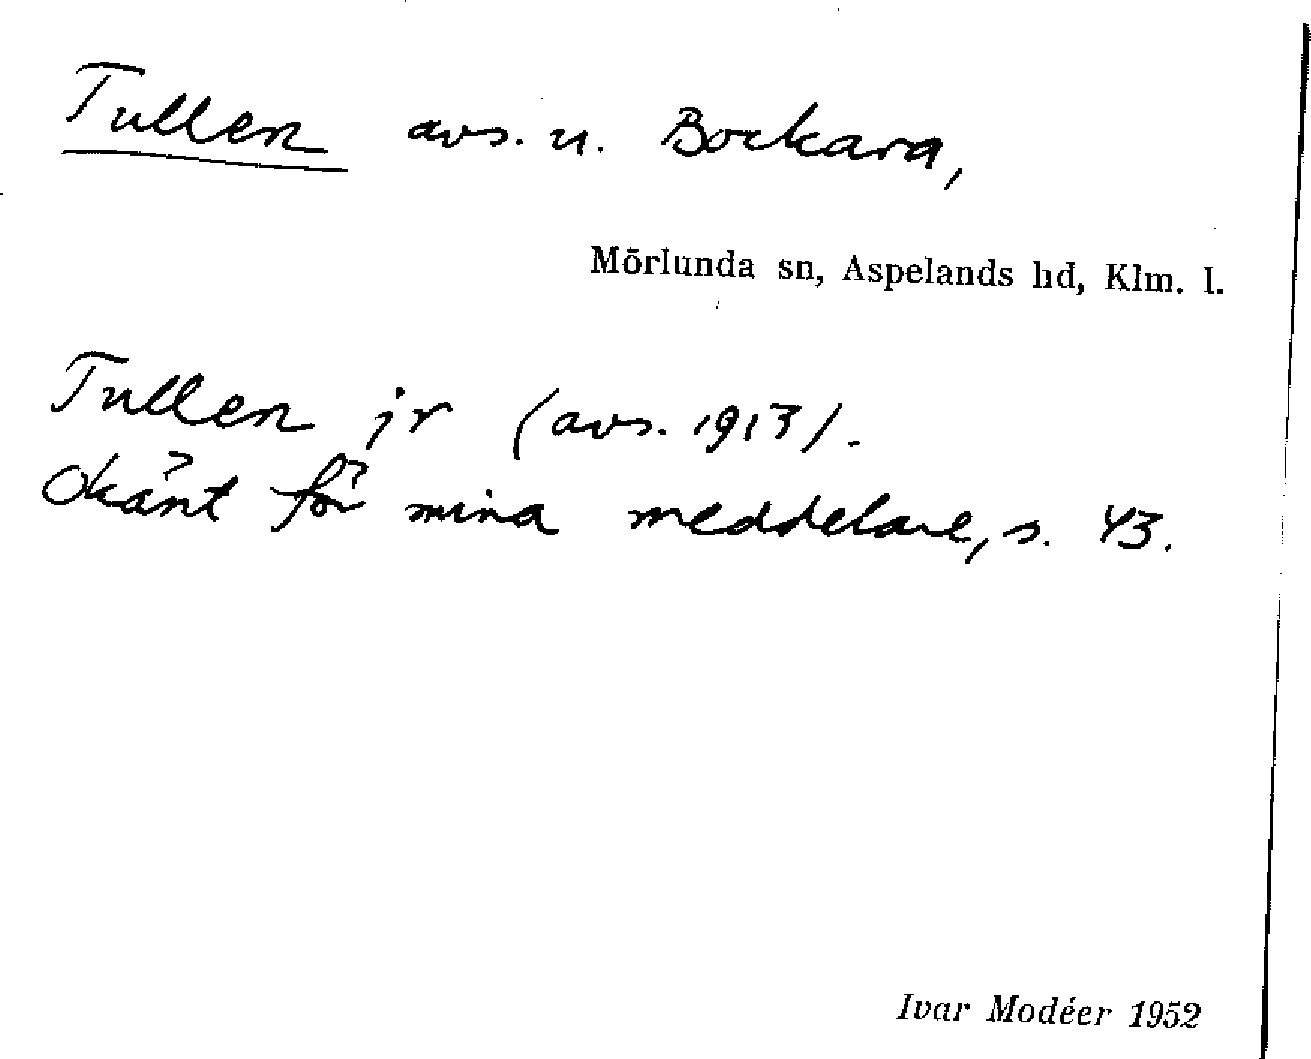 Tullen avs. u. Bockara,
Mörlunda sn, Aspelands hd, Klm. l.
Tullen jr (avs. 1913).
Okänt för mina meddelare, s. 43.
Ivar Modéer 1952